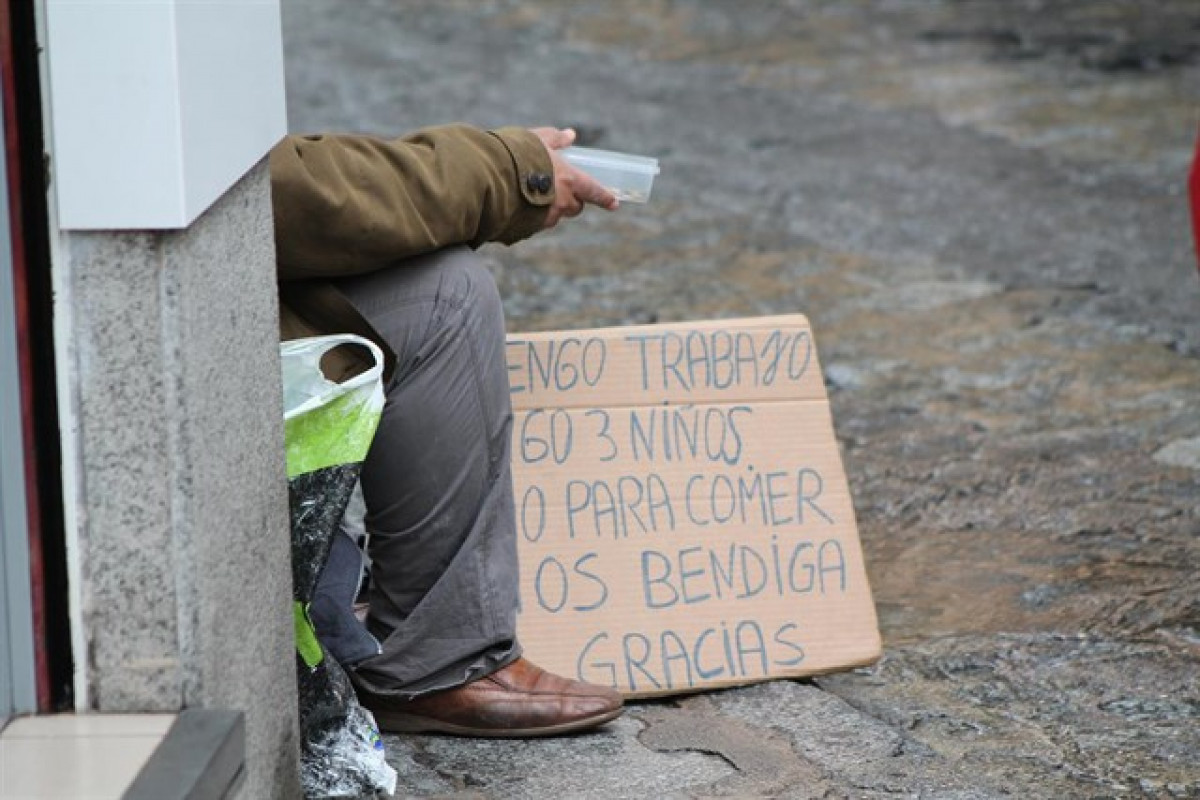 ENGO TRABAJO
GO 3 NIÑOS
O PARA COMER
IOS BENDIGA
GRACIAS